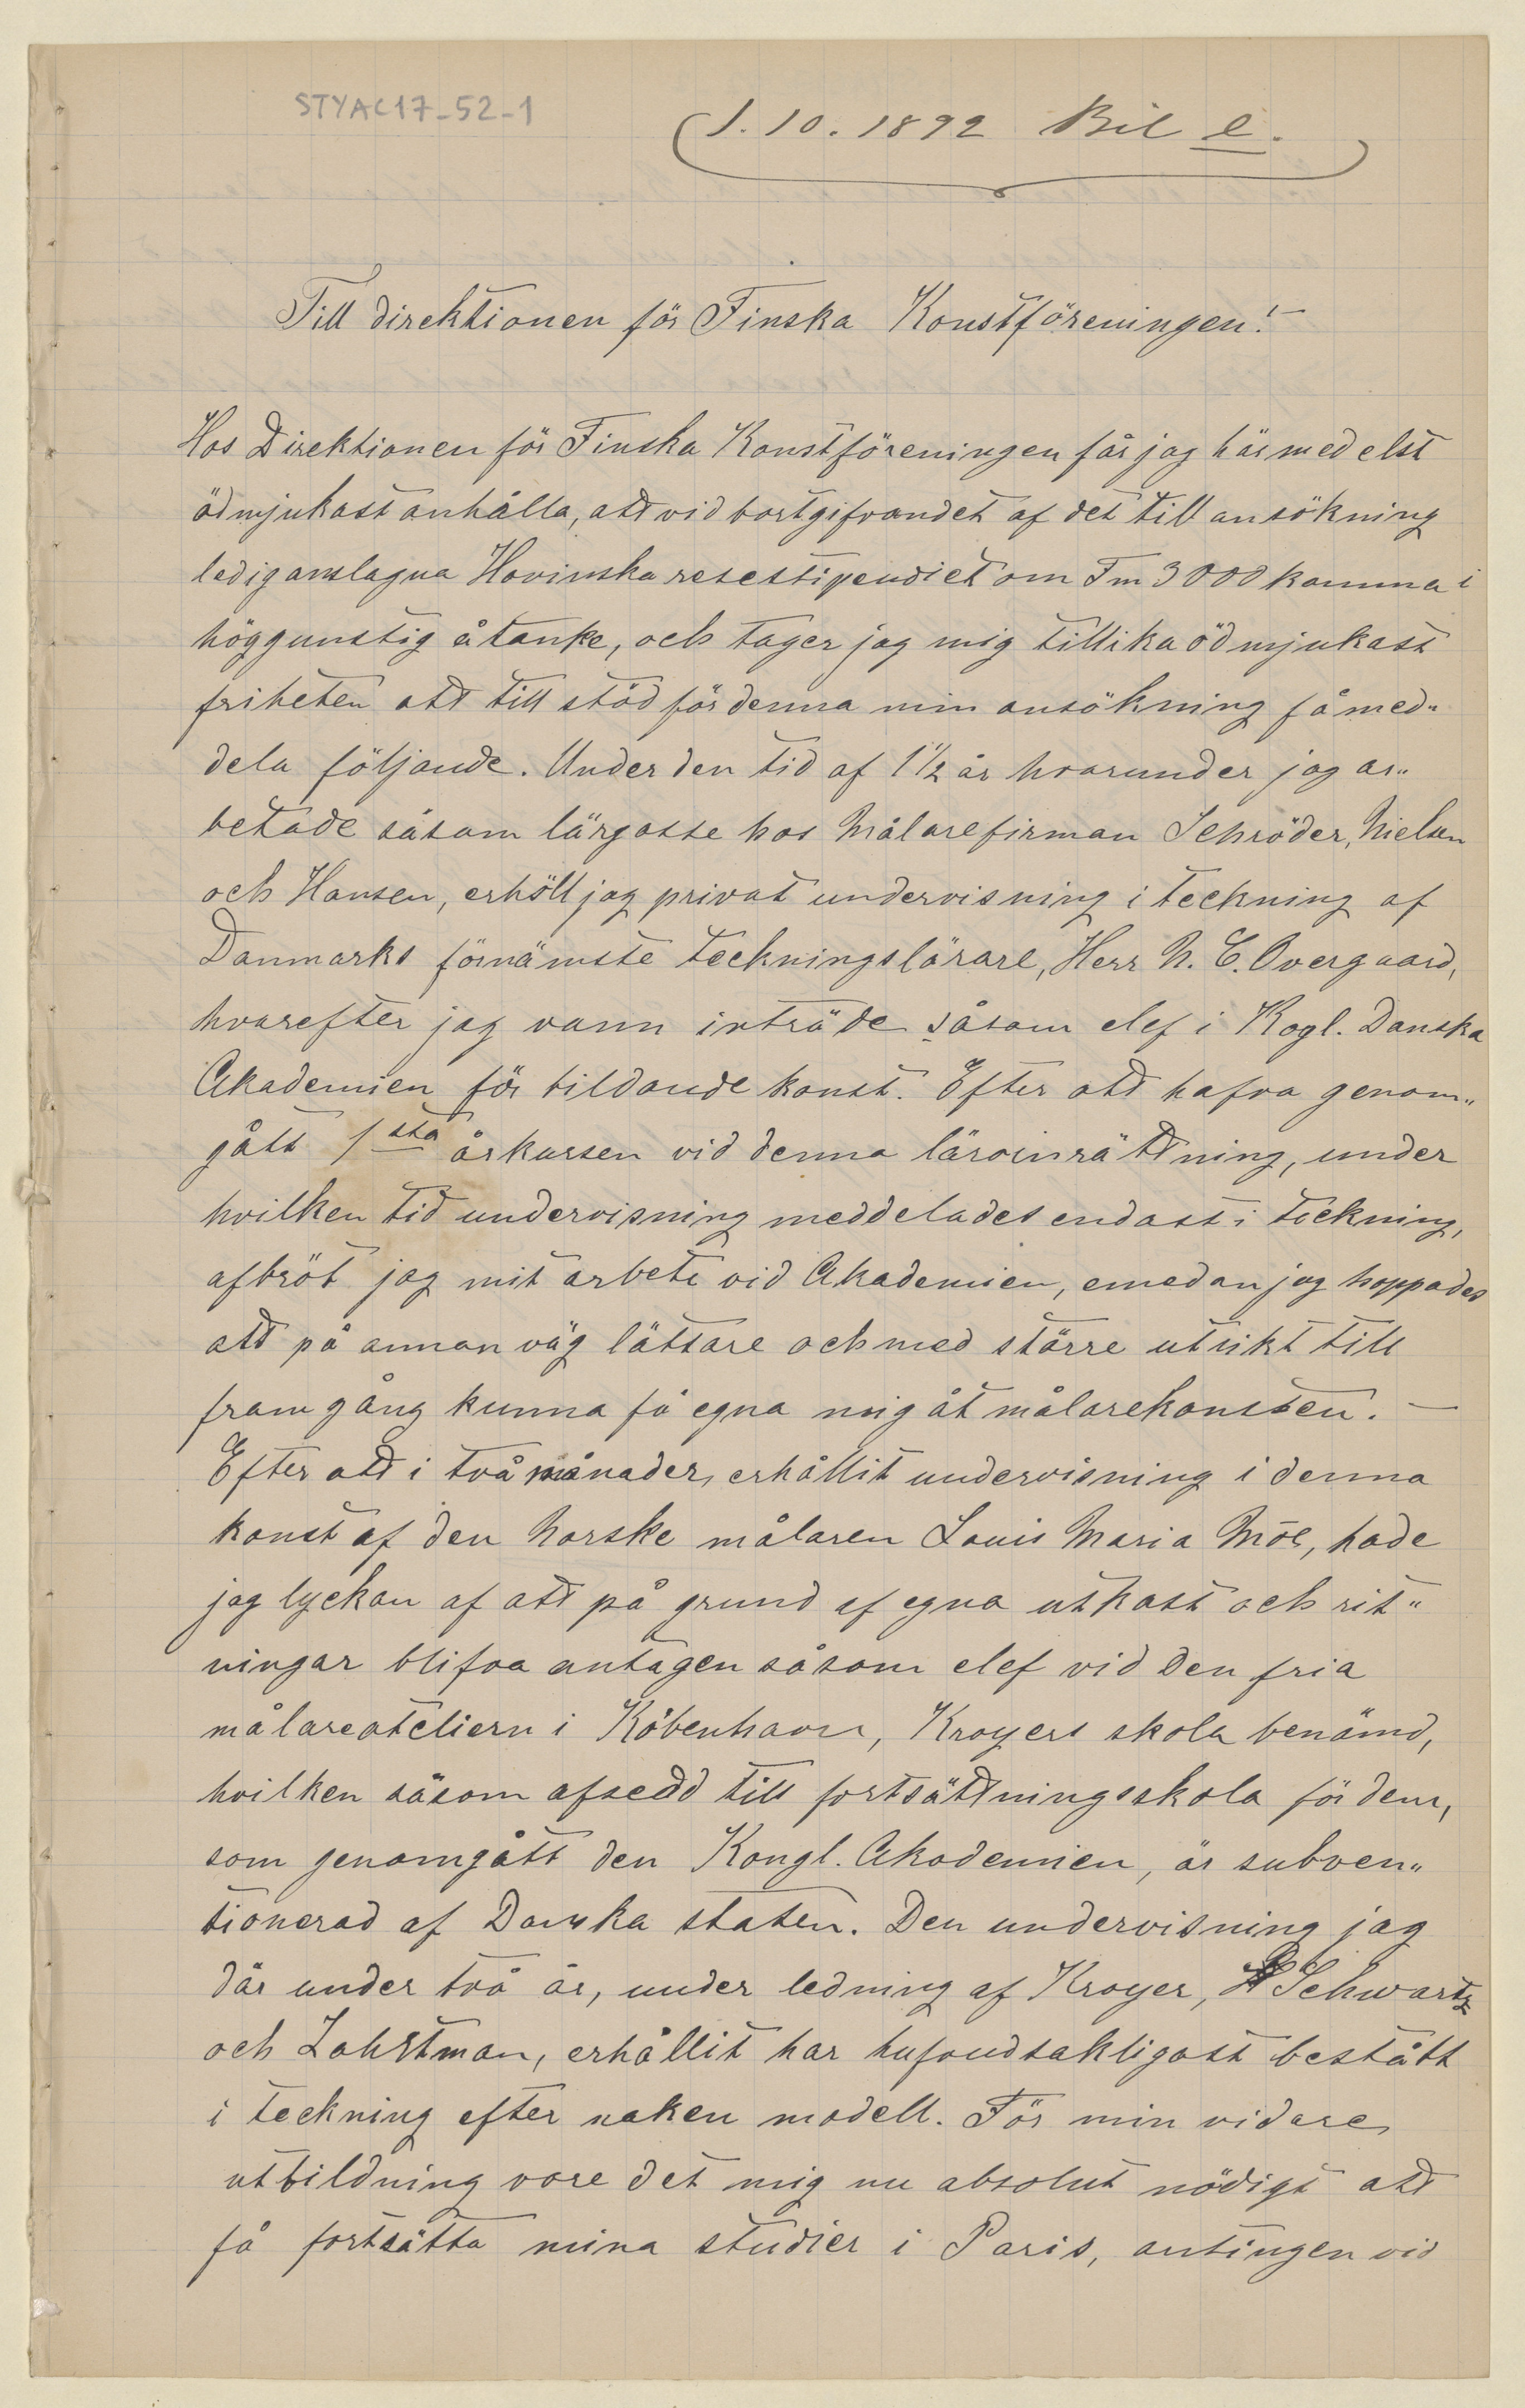 STYAC17-52-1
1.10.1892 Bil e.
Till direktionen för Finska Konstföreningen!
Hos Direktionen för Finska Konstföreningen får jag härmedelst
ödmjukast anhålla, att vid bortgifvandet af det till ansökning
lediganslagna Hovinska resestipendiet om Fm 3000 komma i
höggunstig åtanke, och tager jag mig tillika ödmjukast
friheten att till stöd för denna min ansökning få med„
dela följande. Under den tid af 1½ år hvarunder jag ar„
betade såsom lärgosse hos Målarefirman Schröder, Nielsen
och Hansen, erhöll jag privat undervisning i teckning af
Danmarks förnämste teckningslärare, Herr N. C. Overgaard,
hvarefter jag vann inträde såsom elef i Kogl. Danska
Akademien för bildande konst. Efter att hafva genom„
gått 1sta årkursen vid denna läroinrättning, under
hvilken tid undervisning meddelades endast i teckning,
afbröt jag mit arbete vid Akademien, emedan jag hoppades
att på annan väg lättare och med större utsikt till
framgång kunna få egna mig åt målarekonsten. —
Efter att i två månader, erhållit undervisning i denna
konst af den Norske målaren Louis Maria Möe, hade
jag lyckan af att på grund af egna utkast och rit„
ningar blifva antagen såsom elef vid Den fria
målareateliern i Köbenhavn, Kroyers skola benämd,
hvilken såsom afsedd till fortsättningsskola för dem,
som genomgått den Kongl. Akademien, är subven„
tionerad af Danska staten. Den undervisning jag
där under två år, under ledning af Kroyer, Schwartz
och Zahrtman, erhållit har hufvudsakligast bestått
i teckning efter naken modell. För min vidare
utbildning vore det mig nu absolut nödigt att
få fortsätta mina studier i Paris, antingen vid